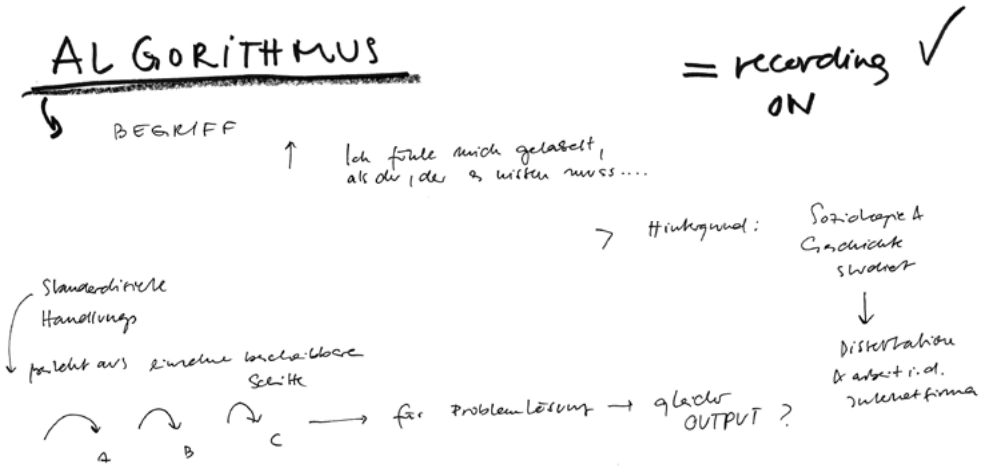 ALGORITHMUS
= recording ✓
ON
BEGRIFF
↑ Ich fühle mich gelabelt,
als der, der es wissen muss....
> Hintergrund: Soziologie &
Geschichte
studiert
↓
Dissertation
& arbeit i.d.
Internetfirma
Standardisierte
Handlungs
besteht aus einzelne beschreibbare
Schritte
A B C → für Problemlösung → gleicher
OUTPUT ?